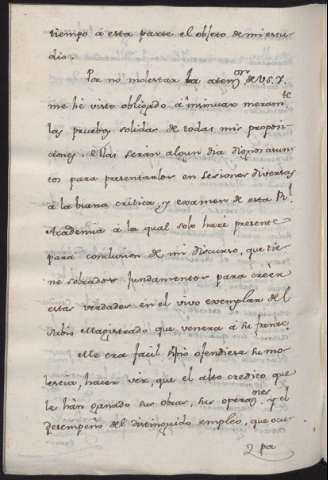 tiempo á esta parte el objeto de mi estu-
dio.
Por no molestar la atenc.on de V.S.Y.
me hé visto obligado á insinuar meram.te
las pruebas solidas de todas mis proposi-
ciones. Ellas serán algun dia dignos asun-
tos para presentarlos en sesiones diversas
á la buena critica, y examen de esta Rl.
Academia á la qual solo haré presente
para conclusion de mi discurso, que tie-
ne sobrados fundamentos para creer
estas verdades en el vivo exemplar del
sabio Magistrado que venera á su frente.
Me era facil sino ofendiese su mo-
destia, hacer vér, que el alto credito que
le hán ganado sus obras, sus operac.ones y el
desempeño del distinguido empleo, que ocu-
pa